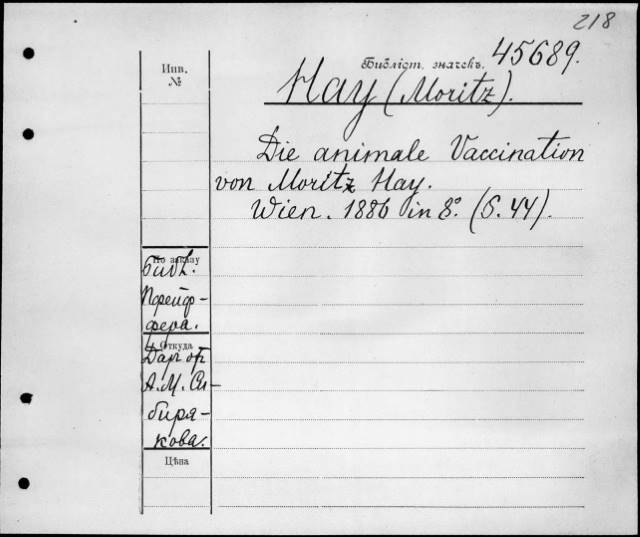 218
Библіот. значекъ. 45689.
Инв.
№
Hay (Moritz).
Die animale Vaccination
von Moritz Hay.
Wien. 1886 in 8º. (S. 44).
По заказу
Библ.
Пфейф-
фера.
Откуда
Даръ от
А. М. Си-
биря-
кова.
Цѣна